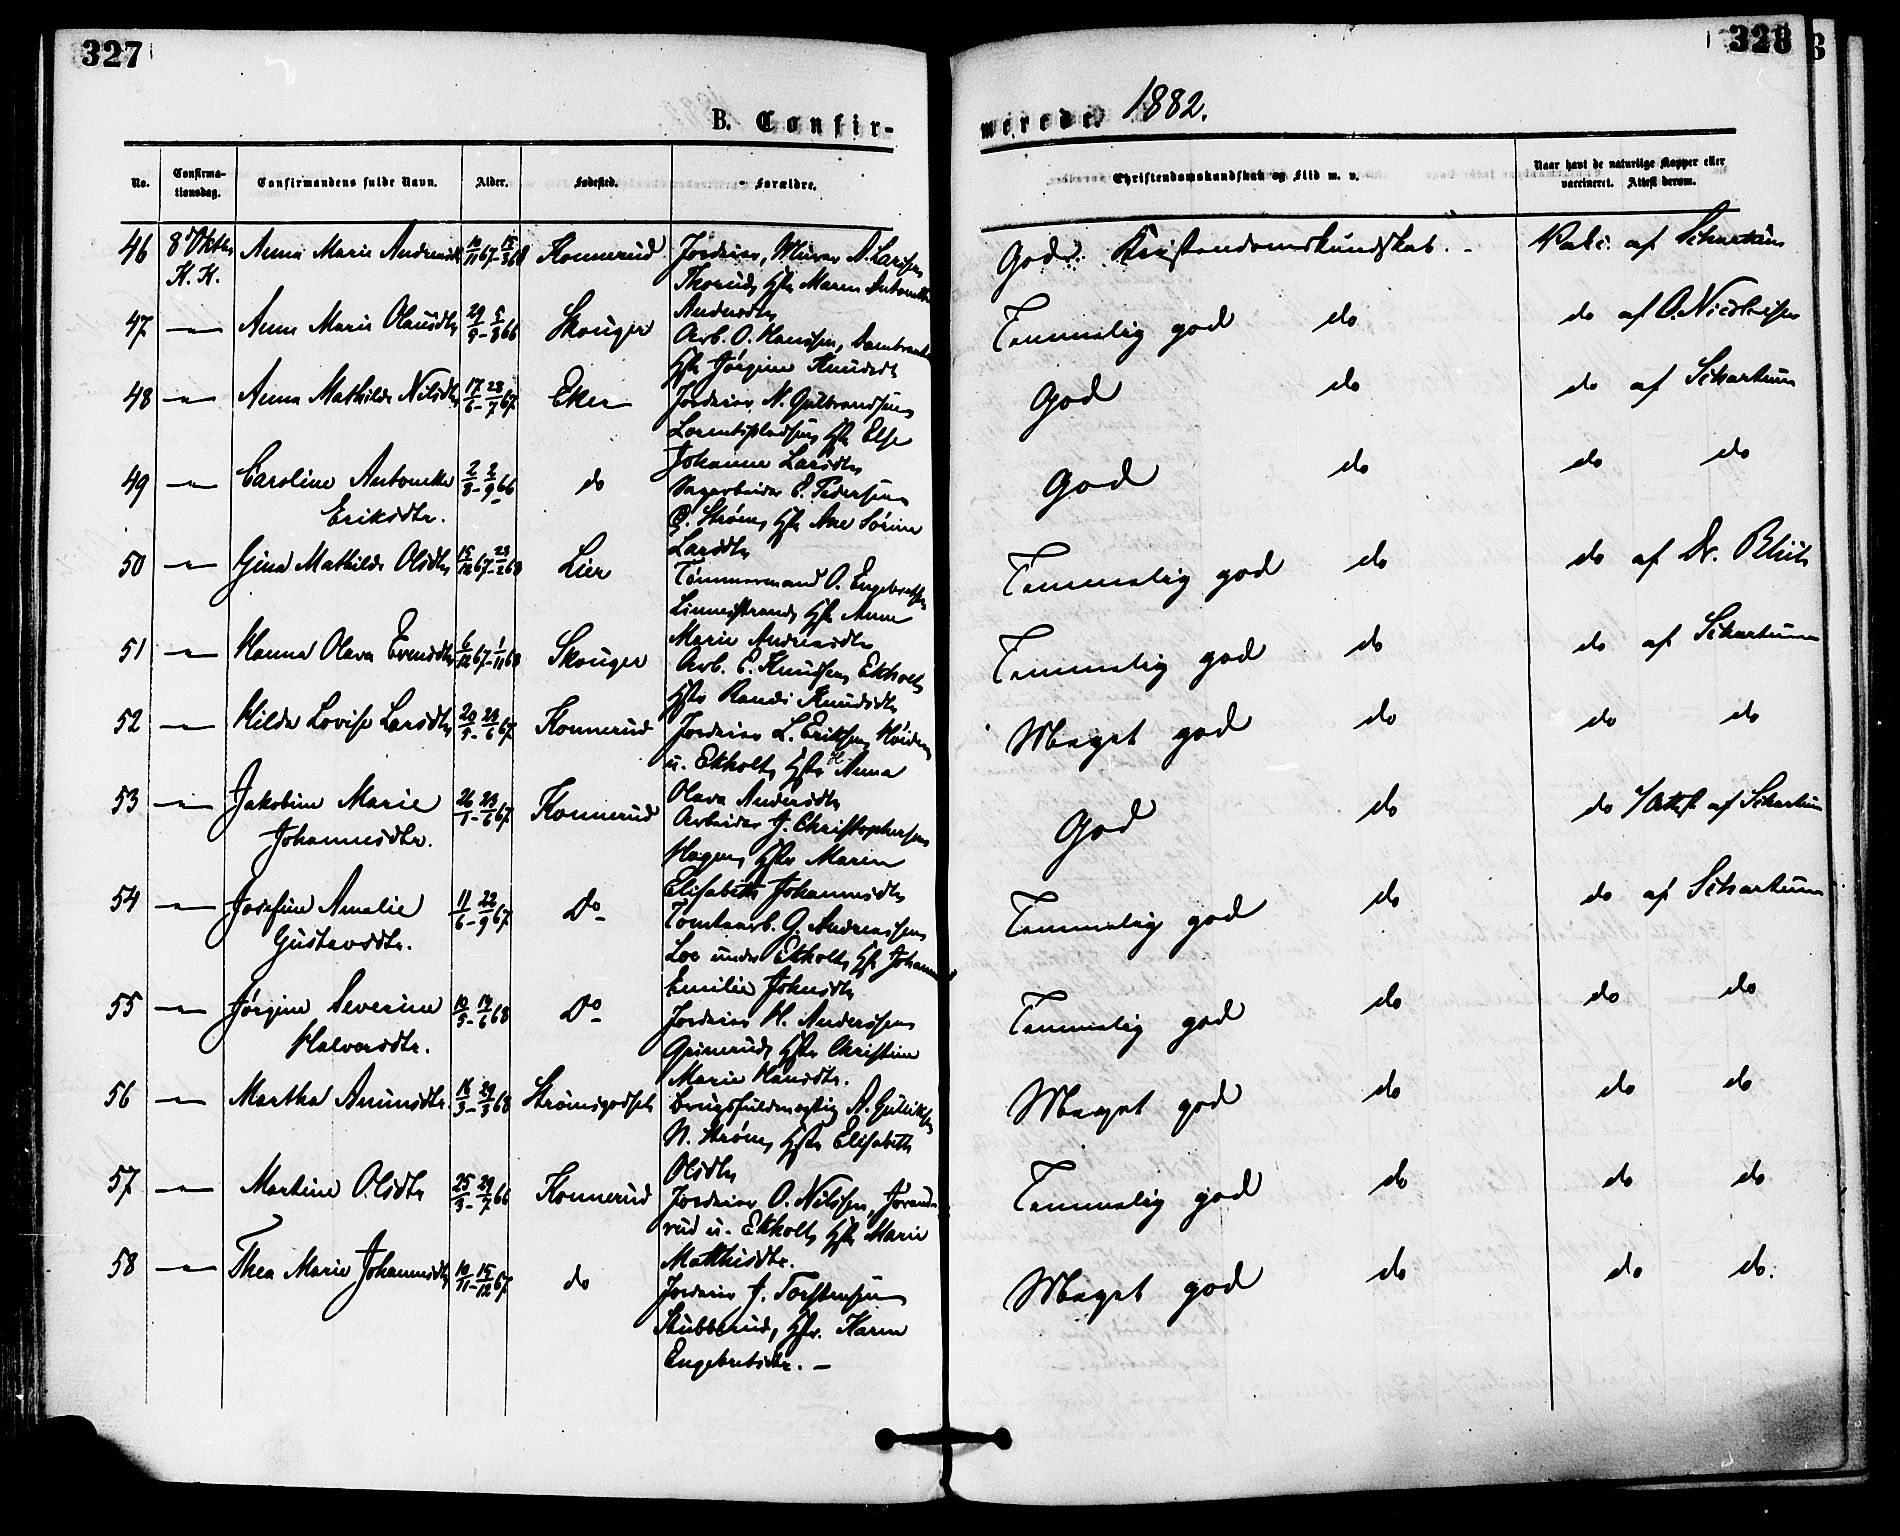 327
328
B. Confir-
merede. 1882.
No.
Confirma-
tionsdag.
Confirmandens fulde Navn.
Alder.
Fødested.
Forældre.
Christendomskundskab og Flid m. v.
Naar havt de naturlige Kopper eller
vaccineret. Attest derom.
46 8de Oktbr. Anna Marie Andersdt. 10/11 67 Konnerud Jordeier, Murer A. Larsen
K. K. Thorud, Hstr Maren Antonette
Andersdtr
God Kristendomskundskab. - Vakc. af Schartum
47 Anne Marie Olausdtr Skouger Arb. O. Hanssen,
Hstr Jørgine Knudsdt
Temmelig god do do af O. Nicolaisen
48 Anna Mathilde Nilsdtr 17/6 - 28/7 67 Eker Jordeier N. Gulbrandsen
Lorentspladsen, Hstr Else
Johanne Larsdtr
God do do af Schartum
49 Caroline Antonette 2/8 - 2/9 66 do Sagarbeider E. Pedersen
Eriksdtr. Ø. Strøm, Hstr Ane Sørine
Larsdtr
God do do do
50 Gina Mathilde Olsdtr 15/12 67 - 23/2 68 Lier Tømmermand O. Engebretsen
Linnesstrand, Hstr Anne
Marie Andreasdtr
Temmelig god do do af Dr.
51 Hanna Olava Evensdtr 6/12 67 - 1/11 68 Skouger Arb. E. Knudsen, Ekholt
Hstr Randi Knudsdtr
Temmelig god do do af Schartum
52 Hilda Lovise Larsdtr 20/5 - 23/6 67 Konnerud Jordeier L. Eriksen,
u. Ekholt, Hstr Anna
Olava Andersdtr
Meget god do do do
53 Jakobine Marie 26/1 - 23/6 67 Konnerud Arbeider J. Christophersen
Johannesdtr. Hagen, Hstr Maren
Elisabeth Johannesdtr
God do do / Attest af Schartum
54 Josefine Amalie 11/6 - 22/9 67 Do Tomtearb. G. Andreassen
Gustavsdtr. Loe under Ekholt, Hstr Johanne
Emilie Johnsdtr
Temmelig god do do af Schartum
55 Jørgine Severine 10/5 - 14/6 68 Do Jordeier H. Anderssen
Halvorsdtr. Grinerud, Hstr Christine
Marie Hansdtr.
Temmelig god do do do
56 Martha Amunsdtr 16/3 - 29/3 68 Strømsgodset Brugsfuldmægtig A. Gulliksen
N. Strøm, Hstr Elisabeth
Olsdtr
Meget god do do do
57 Martine Olsdtr 25/3 - 29/7 66 Konnerud Jordeier O. Nilssen,
rud u. Ekholt, Hstr Marie
Mathisdtr.
Temmelig god do do do
58 Thea Marie Johannesdtr 10/11 - 15/12 67 do Jordeier J. Torstensen
Stubberud, Hstr. Karen
Engebretsdtr. -
Meget god do do do.